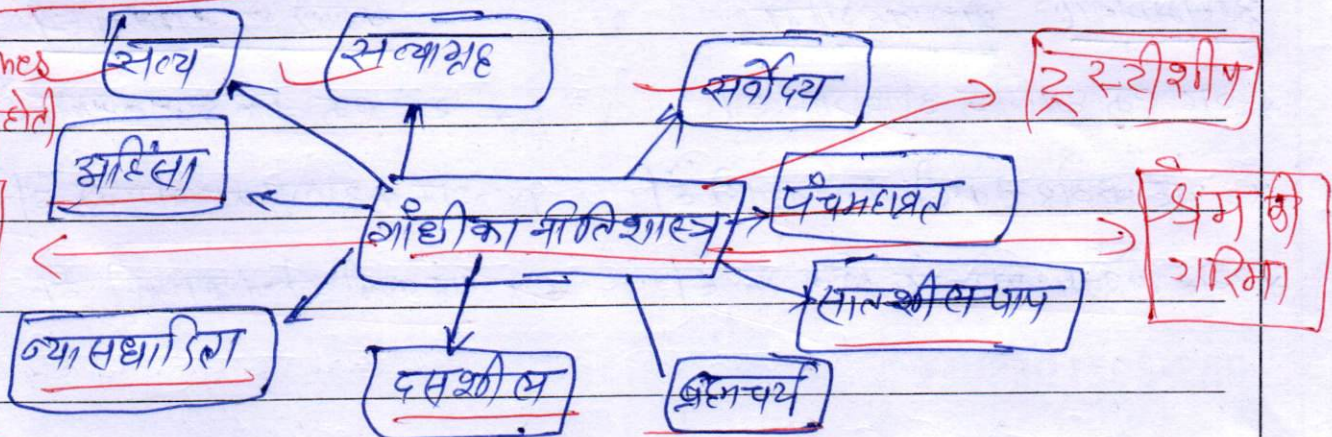 nes
होती
सत्य
सत्याग्रह
सर्वोदय
ट्रस्टीशीप
अहिंसा
गाँधी का नीतिशास्त्र
पंचमहाव्रत
श्रम की
गरिमा
सात शील पाप
न्यासधारिता
दसशील
ब्रह्मचर्य